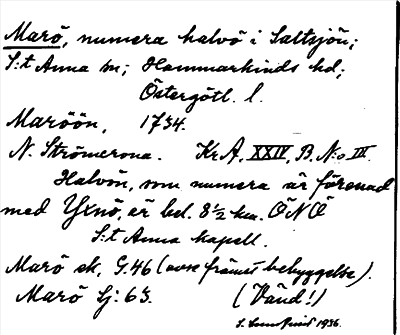 Marö, numera halvö i Saltsjön;
S:t Anna sn; Hammarkinds hd;
Östergötl. l.
Maröön, 1734.
N. Strömcrona. KrA, XXIV, B. N:o III.
Halvön, som numera är förenad
med Yxnö, är bel. 8½ km. ÖNÖ
S:t Anna kapell.
Marö sk, G.46 (avse främst bebyggelse).
Marö Lj: 63. (Vänd!)
1936.